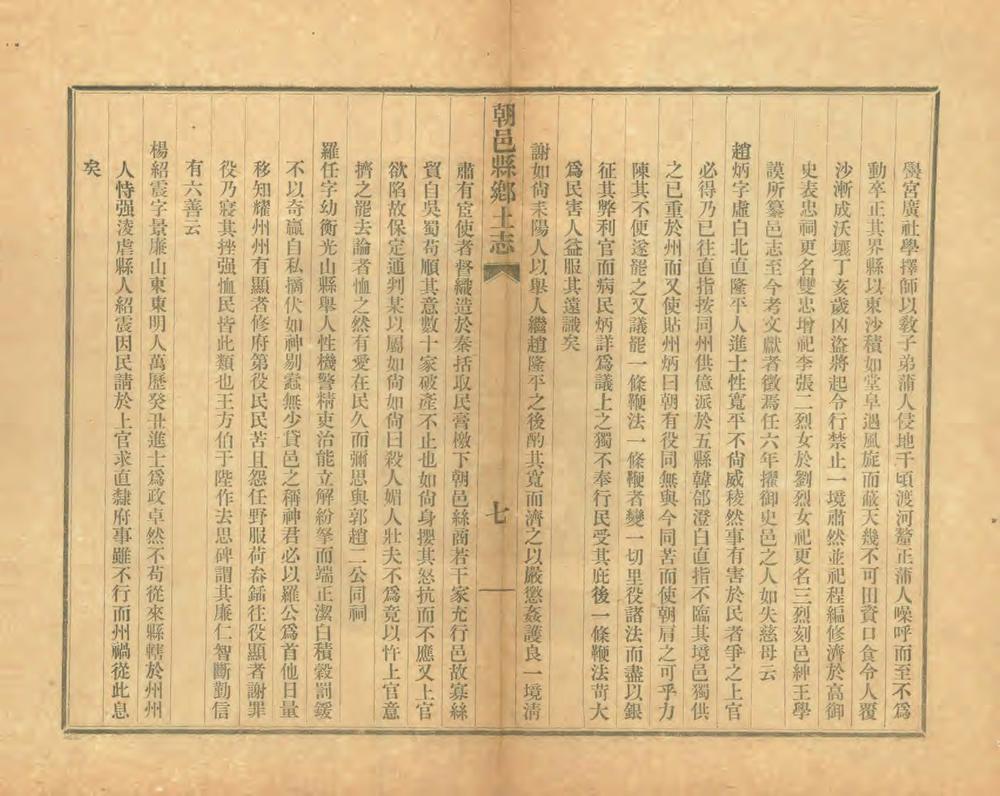 黌宮廣社學擇師以敎子弟蒲人侵地千頃渡河釐正蒲人噪呼而至不爲
動卒正其界縣以東沙積如堂阜遇風旋而蔽天幾不可田資口食令人覆
沙漸成沃壤丁亥歲凶盜將起令行禁止一境肅然並祀程編修濟於高御
史表忠祠更名雙忠增祀李張二烈女於劉烈女祀更名三烈刻邑紳王學
謨所纂邑志至今考文獻者徵焉任六年擢御史邑之人如失慈母云
趙炳字虛白北直隆平人進士性寬平不尙威稜然事有害於民者爭之上官
必得乃已往直指按同州供億派於五縣韓郃澄白直指不臨其境邑獨供
之已重於州而又使貼州炳曰朝有役同無與今同苦而使朝肩之可乎力
陳其不便遂罷之又議罷一條鞭法一條鞭者變一切里役諸法而盡以銀
征其弊利官而病民炳詳爲議上之獨不奉行民受其庇後一條鞭法苛大
爲民害人益服其遠識矣
謝如尙耒陽人以舉人繼趙隆平之後酌其寬而濟之以嚴懲姦護良一境淸
朝邑縣鄉土志
七
肅有宦使者督織造於秦括取民膏檄下朝邑絲商若干家充行邑故寡絲
貿自吳蜀苟順其意數十家破產不止也如尙身攖其怒抗而不應又上官
欲陷故保定通判某以屬如尙如尙曰殺人媚人壯夫不爲竟以忤上官意
擠之罷去論者恤之然有愛在民久而彌思與郭趙二公同祠
羅任字幼衡光山縣舉人性機警精吏治能立解紛拏而端正潔白積穀罰鍰
不以奇羸自私摘伏如神剔蠹無少貸邑之稱神君必以羅公爲首他日量
移知耀州州有顯者修府第役民民苦且怨任野服荷畚鍤往役顯者謝罪
役乃寢其挫强恤民皆此類也王方伯于陛作去思碑謂其廉仁智斷勤信
有六善云
楊紹震字景廉山東東明人萬歷癸丑進士爲政卓然不苟從來縣轄於州州
人恃强淩虐縣人紹震因民請於上官求直隸府事雖不行而州禍從此息
矣